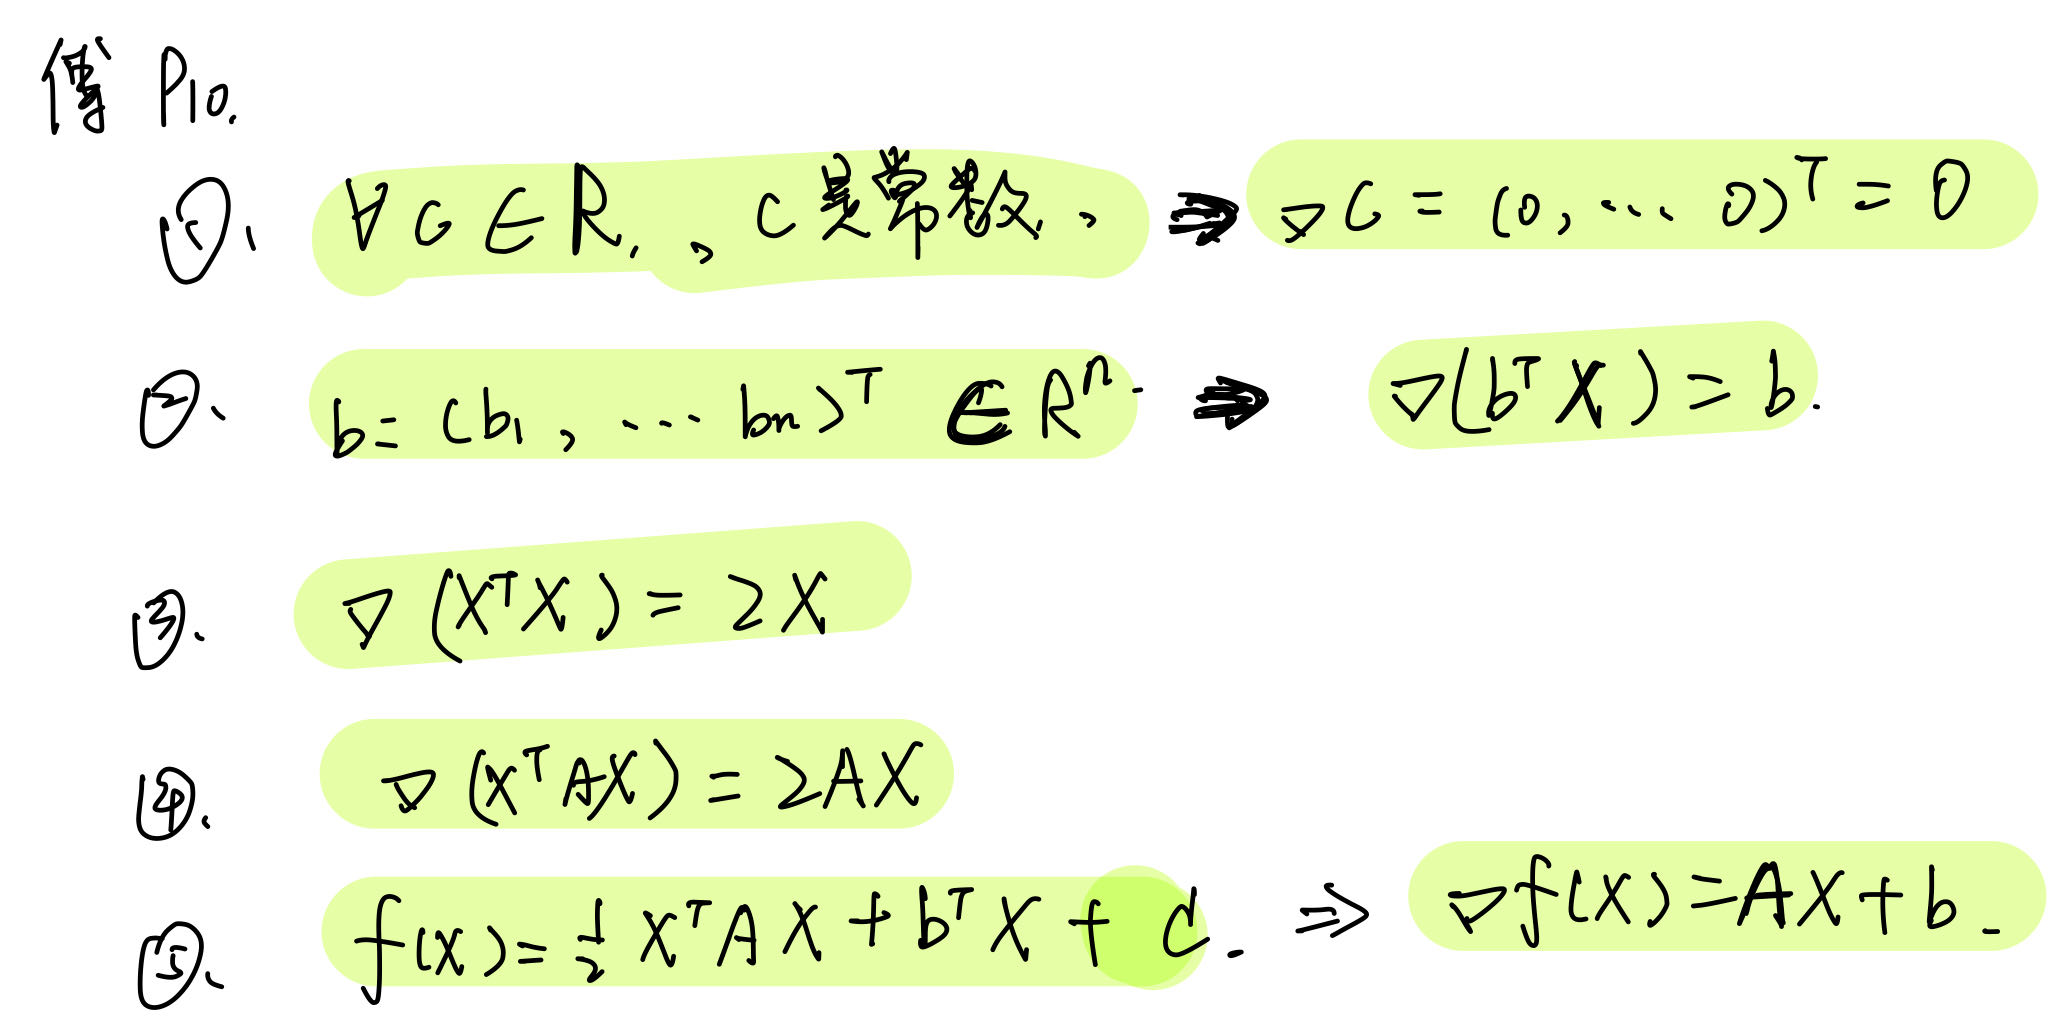 傅 P10.
①. ∀ C ∈ R. , C是常数, ⇒ ▽C = (0, ... 0)ᵀ = 0
②. b = (b₁, ... bₙ)ᵀ ∈ Rⁿ. ⇒ ▽(bᵀX) = b.
③. ▽(XᵀX) = 2X
④. ▽(XᵀAX) = 2AX
⑤. f(X) = ½ XᵀAX + bᵀX + C. ⇒ ▽f(X) = AX + b.